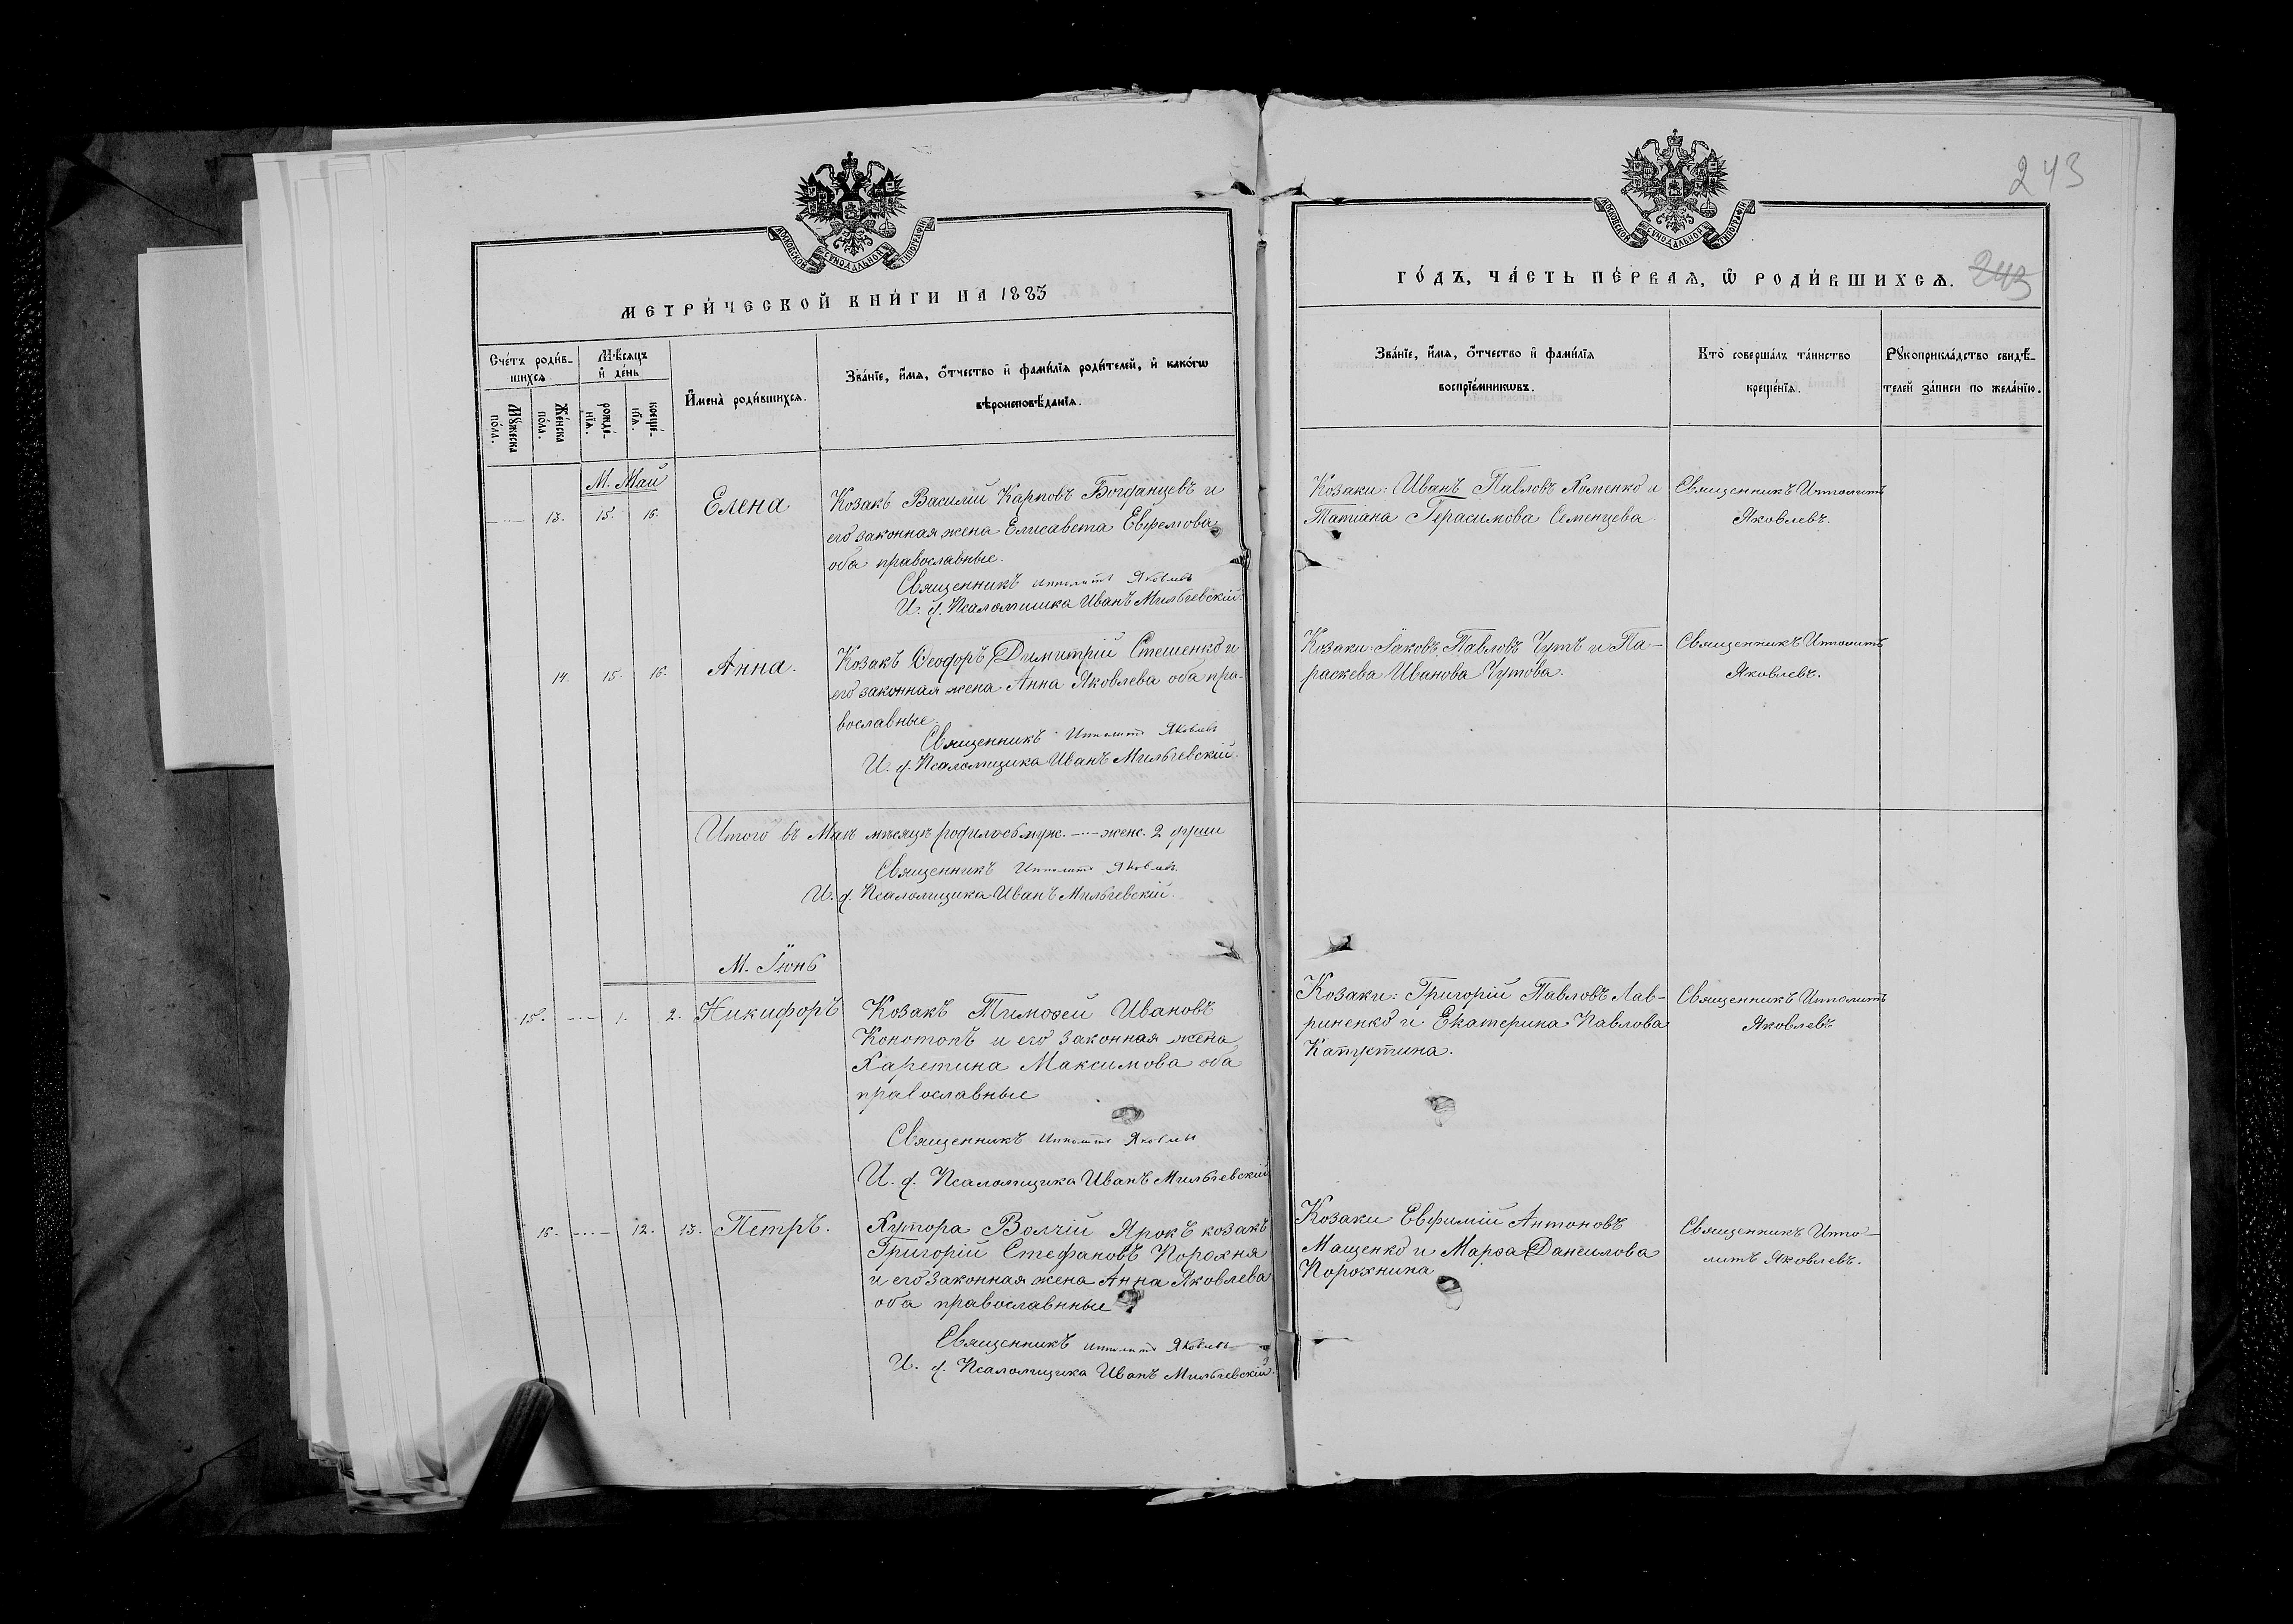 МОСКОВСКОЙ СѴНОДАЛЬНОЙ ТИПОГРАФІИ
МЕТРИ́ЧЕСКОЙ КНИ́ГИ НА 1883
Сче́тъ роди́в-
шихся
Мѣ́сяцъ
и҆ де́нь
Мꙋ́жеска
по́ла.
Же́нска
по́ла.
рожде́-
нїѧ.
креще́-
нїѧ.
И҆мена̀ роди́вшихсѧ.
Зва́нїе, и҆́мѧ, ѻ҆́тчество и҆ фами́лїѧ роди́телей, и҆ како́гѡ
вѣроисповѣ́данїѧ.
М. Май
13. 15. 16. Елена
Козакъ Василій Карповъ Богданцевъ и
его законная жена Елисавета Евфремова
оба православные.
Священникъ Ипполитъ Яковлевъ
И. д. Псаломщика Иванъ Мильгевскій
14. 15. 16. Анна.
Козакъ Ѳеодоръ Димитрій Стешенко и
его законная жена Анна Яковлева оба пра-
вославные.
Священникъ Ипполитъ Яковлевъ
И. д. Псаломщика Иванъ Мильгевскій.
Итого въ Маѣ мѣсяцѣ родилось муж. —··— женс. 2 души
Священникъ Ипполитъ Яковлевъ
И. д. Псаломщика Иванъ Мильгевскій.
М. Іюнь
15. —··— 1. 2. Никифоръ
Козакъ Тимоѳей Ивановъ
Конотопъ и его законная жена
Харетина Максимова оба
православные
Священникъ Ипполитъ Яковлевъ
И. д. Псаломщика Иванъ Мильгевскій
16. —··— 12. 13. Петръ.
Хутора Волчій Ярокъ козакъ
Григорій Стефановъ Порохня
и его законная жена Анна Яковлева
оба православнные
Священникъ Ипполитъ Яковлевъ
И. д. Псаломщика Иванъ Мильгевскій
243
МОСКОВСКОЙ СѴНОДАЛЬНОЙ ТИПОГРАФІИ
ГО́ДЪ, ЧА́СТЬ ПЕ́РВАЯ, Ѿ РОДИ́ВШИХСЯ. 243
Зва́нїе, и҆́мѧ, ѻ҆́тчество и҆ фами́лїѧ
воспрїе́мникѡвъ.
Кто̀ соверша́лъ та́инство
креще́нїѧ.
Рꙋкоприкла́дство свидѣ́-
телей за́писи по жела́нїю.
Козаки: Иванъ Павловъ Хоменко и
Татіана Герасимова Семенцева
Священникъ Ипполитъ
Яковлевъ.
Козаки: Іаковъ Павловъ Чутъ и Па-
раскева Иванова Чутова.
Священникъ Ипполитъ
Яковлевъ.
Козаки: Григорій Павловъ Лав-
риненко и Екатерина Павлова
Капустина.
Священникъ Ипполитъ
Яковлевъ
Козаки Евфимій Антоновъ
Мащенко и Марѳа Даниилова
Порохнина
Священникъ Иппо-
литъ Яковлевъ.